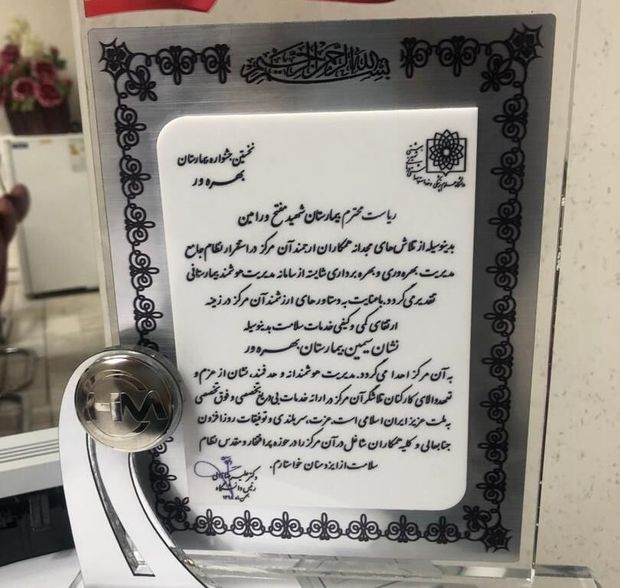 بسم الله الرحمن الرحیم
نخستین جشنواره بیمارستان
بهره ور
ریاست محترم بیمارستان شهید مفتح ورامین
بدینوسیله از تلاش های مجدانه همکاران ارجمند آن مرکز در استقرار نظام جامع
مدیریت بهره وری و بهره برداری شایسته از سامانه مدیریت هوشمند بیمارستانی
تقدیر می گردد. با عنایت به دستاوردهای ارزشمند آن مرکز در زمینه
ارتقای کمی و کیفی خدمات سلامت بدینوسیله
نشان سیمین بیمارستان بهره ور
به آن مرکز اهدا می گردد. مدیریت هوشمندانه و هدفمند، نشان از عزم و
تعهد والای کارکنان تلاشگر آن مرکز در ارائه خدمات بی دریغ تخصصی و فوق تخصصی
به ملت عزیز ایران اسلامی است. عزت، سربلندی و توفیقات روزافزون
جنابعالی و کلیه همکاران شاغل در آن مرکز را در حوزه پرافتخار و مقدس نظام
سلامت از ایزد منان خواستارم.
دکتر
رئیس دانشگاه
HM